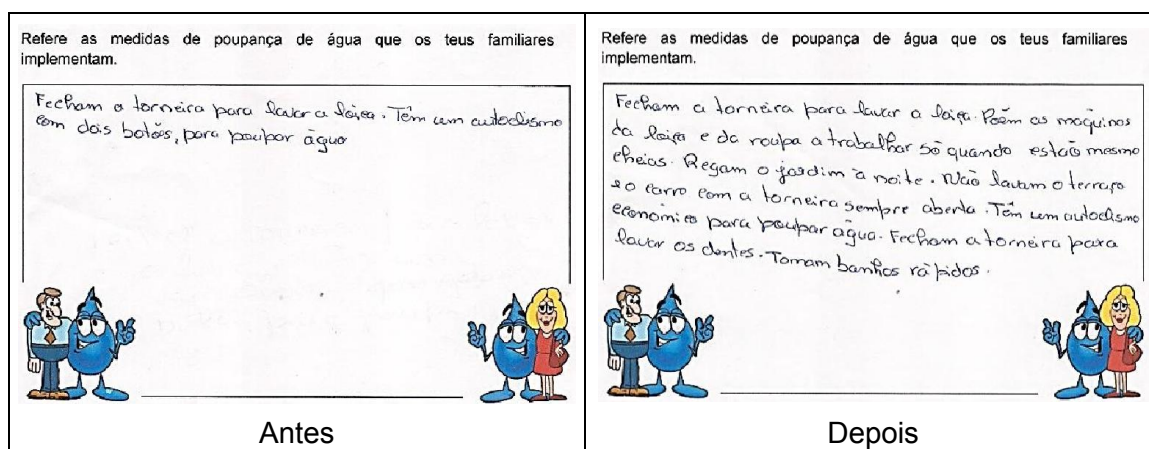 Refere as medidas de poupança de água que os teus familiares
implementam.
Fecham a torneira para lavar a loiça. Têm um autoclismo
com dois botões, para poupar água
Antes
Refere as medidas de poupança de água que os teus familiares
implementam.
Fecham a torneira para lavar a loiça. Põem as máquinas
da loiça e da roupa a trabalhar só quando estão mesmo
cheias. Regam o jardim à noite. Não lavam o terraço
e o carro com a torneira sempre aberta. Têm um autoclismo
económico para poupar água. Fecham a torneira para
lavar os dentes. Tomam banhos rápidos.
Depois